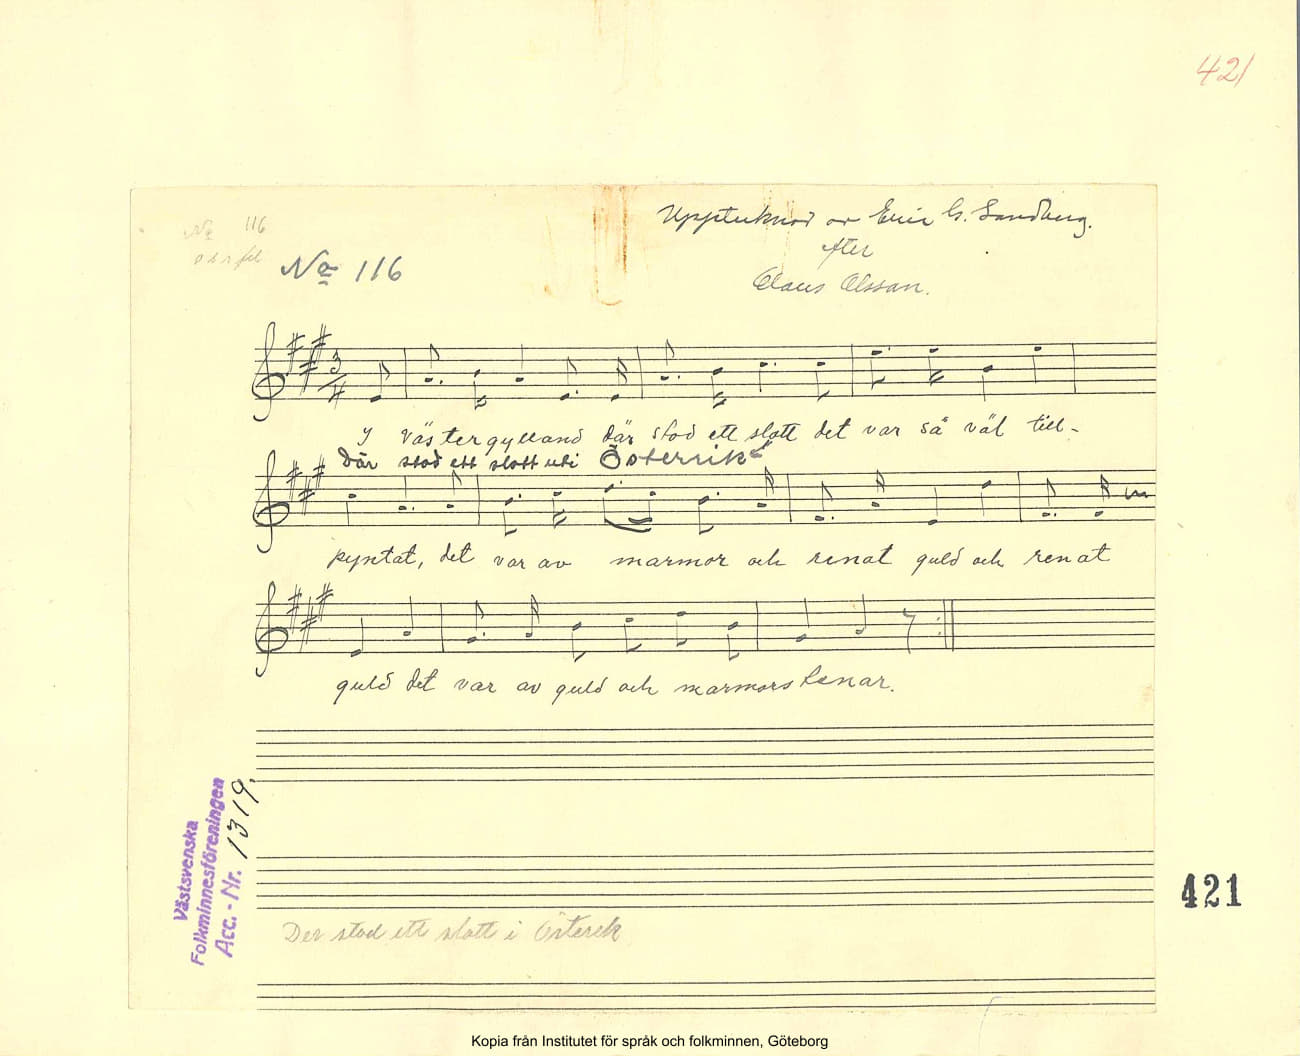 421
Nº 116
Nº 116
Upptecknad av Eric G. Sandberg.
efter
Claus Olsson.
3/4
I västergylland där stod ett slott det var så väl till-
Där stod ett slott uti Österrik
pyntat, det var av marmor och renat guld och renat
guld det var av guld och marmorstenar.
Västsvenska
Folkminnesföreningen
Acc.-Nr. 1319.
421
Der stod ett slott i Österek
Kopia från Institutet för språk och folkminnen, Göteborg